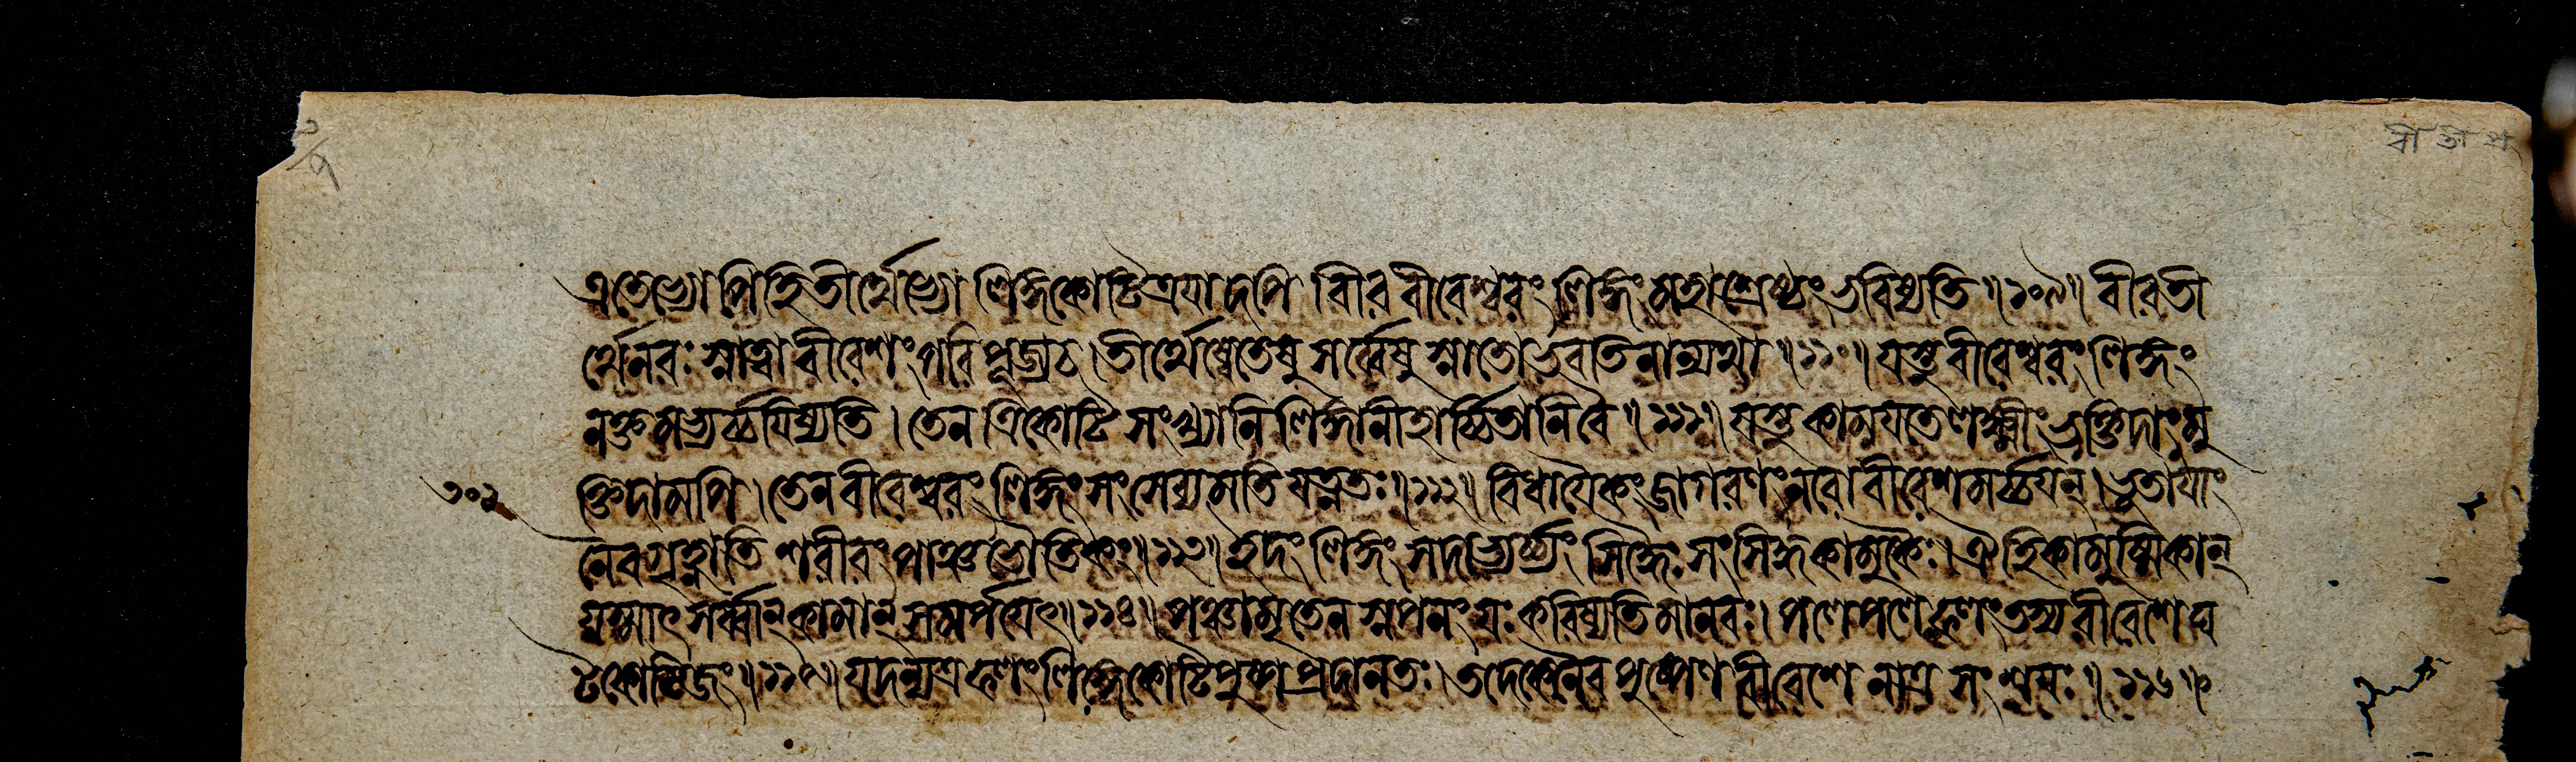 বী তী প্র
এতেভ্যোপিহিতীর্থেভ্যো লিঙ্গকোটিত্রয়াদপি বীরবীরেশ্বরং লিঙ্গং মহাশ্রেষ্ঠং ভবিষ্যতি॥১০৯॥ বীরতী
র্থেনরঃ স্নাত্বা বীরেশং পরিপূজ্যচ।তীর্থেষ্বেতেষু সর্ব্বেষু স্নাতো ভবতিনান্যথা॥১১০॥ যস্তুবীরেশ্বরং লিঙ্গং
নক্তমভ্যর্চ্চয়িষ্যতি। তেন ত্রিকোটি সংখ্যানি লিঙ্গানীহার্চ্চিতানিবৈ॥১১১॥ যস্তু কাময়তেলক্ষ্মীং ভুক্তিদাংমু
৩০২ ক্তিদামপি। তেনবীরেশ্বরং লিঙ্গং সংসেব্যমতি যত্নতঃ॥১১২॥ বিধায়ৈকং জাগরণং নরোবীরেশমর্চ্চয়ন্।ভূতায়াং
নৈবগৃহ্ণাতি শরীরং পাঞ্চভৌতিকং॥১১৩॥ ইদং লিঙ্গং সদাভ্যর্চ্চ্যং সিদ্ধৈঃ সংসিদ্ধকামুকৈঃ। ঐহিকামুষ্মিকান্
যস্মাৎ সর্ব্বান্ কামান্ সমর্পয়েৎ॥১১৪॥ পঞ্চামৃতেন স্নপনং যঃ করিষ্যতিমানবঃ। পলেপলেফলং তস্য বীরেশে ঘ
টকোটিজং॥১১৫॥ যদন্যত্রফলং লিঙ্গেকোটিপুষ্প প্রদানতঃ। তদেকেনৈব পুষ্পেণ বীরেশে নাত্র সংশয়ঃ॥১১৬॥